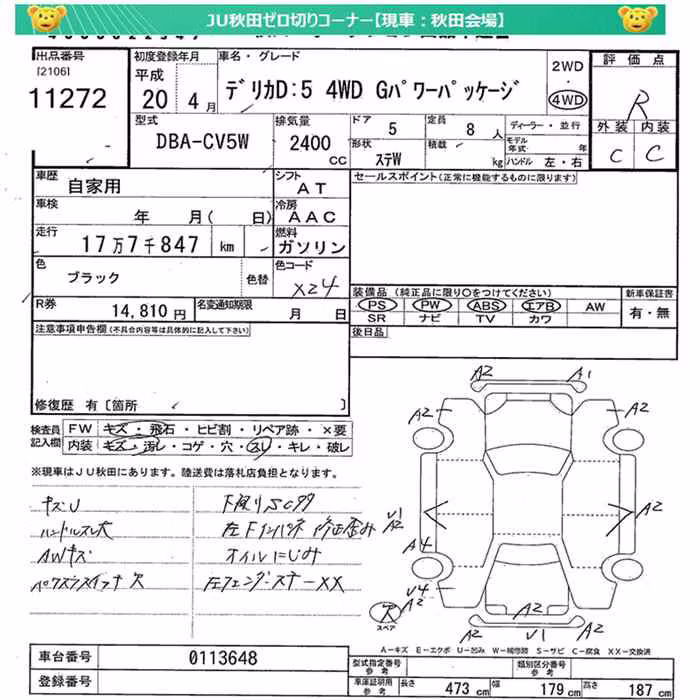 JU秋田ゼロ切りコーナー【現車：秋田会場】
出品番号 初度登録年月 車名・グレード 2WD・4WD 評価点
[2106] 11272
平成 20 年 4 月
デリカD:5 4WD Gパワーパッケージ
R
型式 DBA-CV5W 排気量 2400 CC
ドア 5 定員 8 人 ディーラー・並行
形状 ステW 積載 kg モデル年式 年 ハンドル 左・右
外装 内装
C C
車歴 自家用 シフト AT セールスポイント(正常に機能するものに限ります)
車検 年 月( 日) 冷房 AAC
走行 17万7千847 km 燃料 ガソリン
色 ブラック 色替 色コード X24
装備品 (純正品に限り○をつけてください) 新車保証書
PS PW ABS エアB AW 有・無
SR ナビ TV カワ
R券 14,810円 名変通知期限 月 日
後日品
注意事項申告欄(不具合内容等は具体的に記入して下さい)
修復歴 有 [箇所 ]
検査員記入欄 FW キズ・飛石・ヒビ割・リペア跡・×要
内装 キズ・汚レ・コゲ・穴・スレ・キレ・破レ
※現車はJU秋田にあります。陸送費は落札店負担となります。
キズU 下廻りSC
ハンドルスレ大 左Fインパネ 修正歪み
AWキズ オイルにじみ
左フェンダーステーXX
A2 A1
A2 A2
V1 A2 A2
A4
V4 A2
R スペア
A2 A2
A2 V1 A2
A-キズ E-エクボ U-凹み W-補修跡 S-サビ C-腐食 XX-交換済
車台番号 0113648
型式指定番号 参考 類別区分番号 参考
登録番号
車庫証明用 参考 長さ 473 cm 幅 179 cm 高さ 187 cm